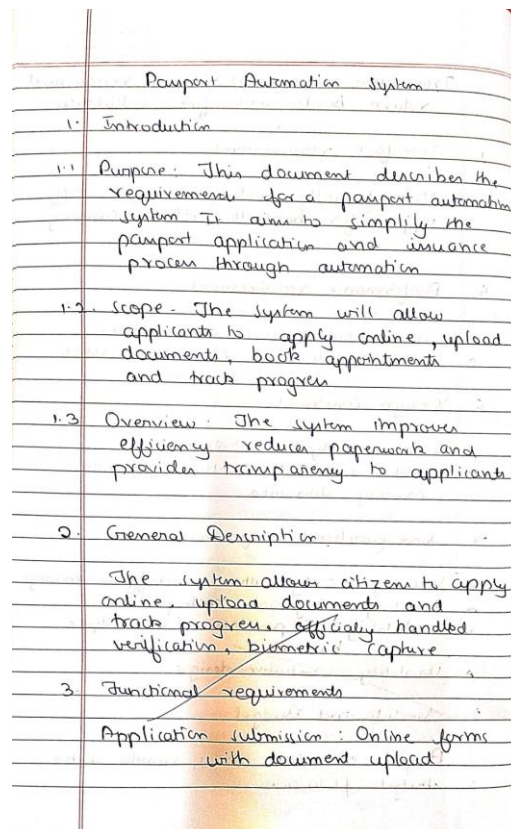 Passport Automation System
1. Introduction
1.1 Purpose: This document describes the
requirements for a passport automation
system It aims to simplily the
passport application and issuance
process through automation
1.2. Scope - The system will allow
applicants to apply online, upload
documents, book appointments
and track progress
1.3 Overview. The system improves
efficiency reduces paperwork and
provides transparency to applicants
2. General Description
The system allows citizens to apply
online, upload documents and
track progress, officialy handled
verification, biometric capture
3. Functional requirements
Application submission : Online forms
with document upload